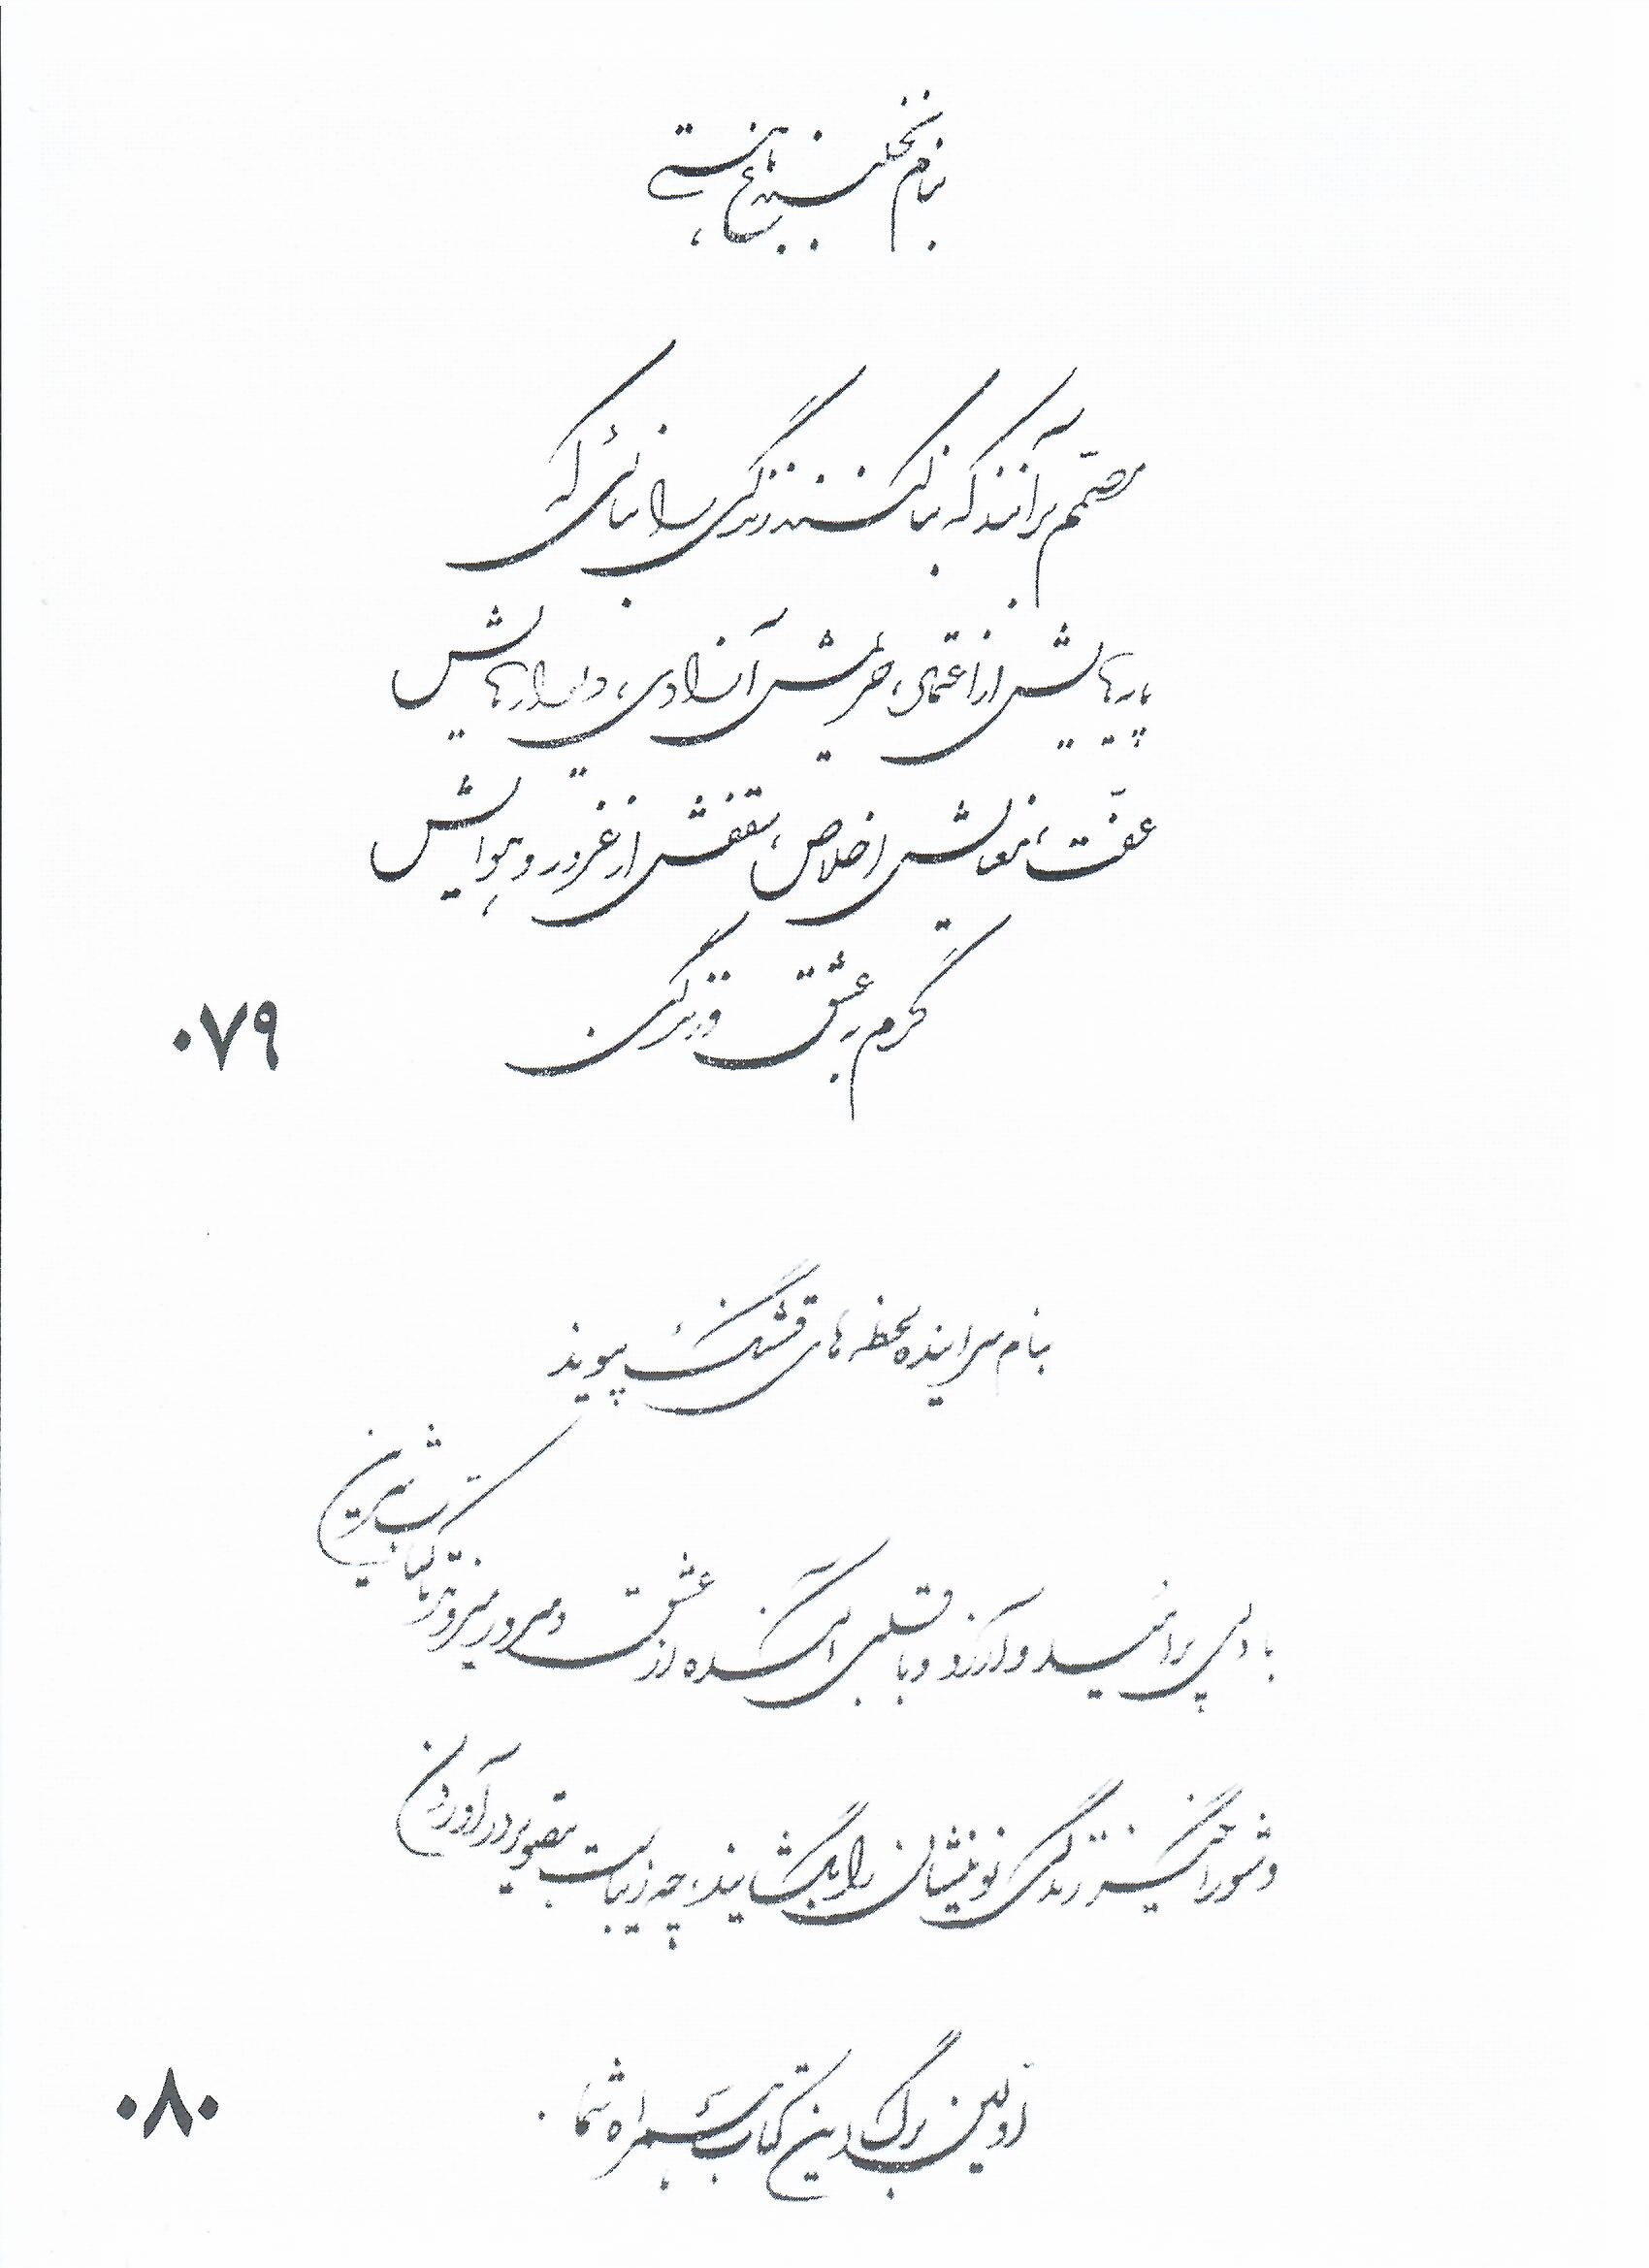 بنام نخلبند باغ هستی
مصمم برآنند که بنا کنند زندگی را بنائی که
پایه‌هایش از اعتماد، حریمش آزادی، دیوارهایش
عفت، نمایش اخلاص، سقفش از غرور و هوایش
گرم به عشق و زندگی
۰۷۹
بنام سراینده لحظه های قشنگ پیوند
با دلی پر امید و آرزو و با قلبی آکنده از عشق و میروند تا کتاب شیرین
و شورانگیز زندگی نوینشان را بگشایند، چه زیباست بتصویر درآوردن
اولین برگ این کتاب بهمراه شما.
۰۸۰